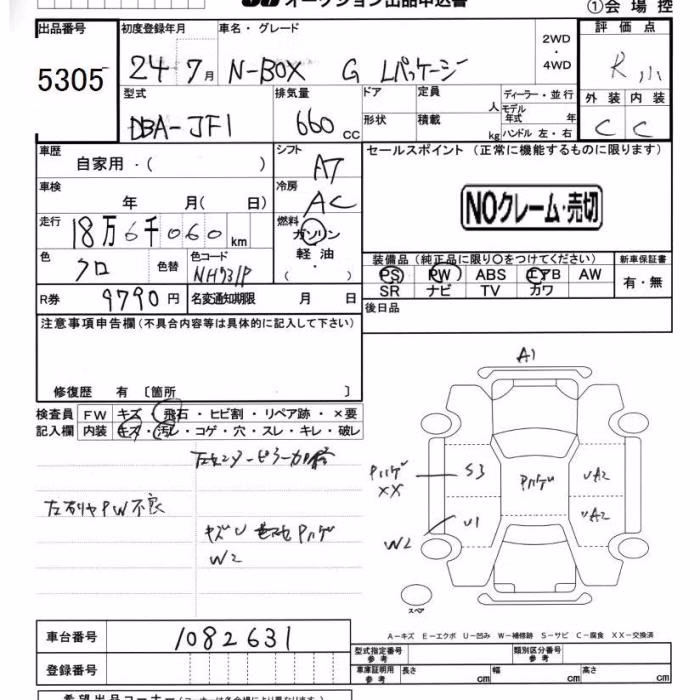 オークション出品申込書
①会場控
出品番号 初度登録年月 車名・グレード 2WD・4WD 評価点
5305 24 7月 N-BOX G Lパッケージ R
型式 排気量 ドア 定員 人 ディーラー・並行 外装 内装
DBA-JF1 660cc 形状 積載 kg モデル年式 年 ハンドル 左・右 C C
車歴 自家用・( ) シフト AT セールスポイント (正常に機能するものに限ります)
車検 年 月( 日) 冷房 AC NOクレーム・売切
走行 18万6千060km 燃料 ガソリン
軽油
( ・ )
色 クロ 色替 色コード NH731P 装備品(純正品に限り〇をつけてください) 新車保証書
PS PW ABS エアB AW 有・無
SR ナビ TV カワ
R券 9790円 名変通知期限 月 日 後日品
注意事項申告欄(不具合内容等は具体的に記入して下さい)
修復歴 有 〔箇所 〕
検査員 FW キズ・飛石・ヒビ割・リペア跡・×要
記入欄 内装 キズ・汚レ・コゲ・穴・スレ・キレ・破レ
PW不良
キズU
W2
A1
Pハゲ S3 Pハゲ UA2
XX
W2 U1 UA2
スペア
A-キズ E-エクボ U-凹み W-補修跡 S-サビ C-腐食 XX-交換済
車台番号 1082631
登録番号
型式指定番号 参考 類別区分番号 参考
車庫証明用 参考 長さ cm 幅 cm 高さ cm
希望出品コーナー